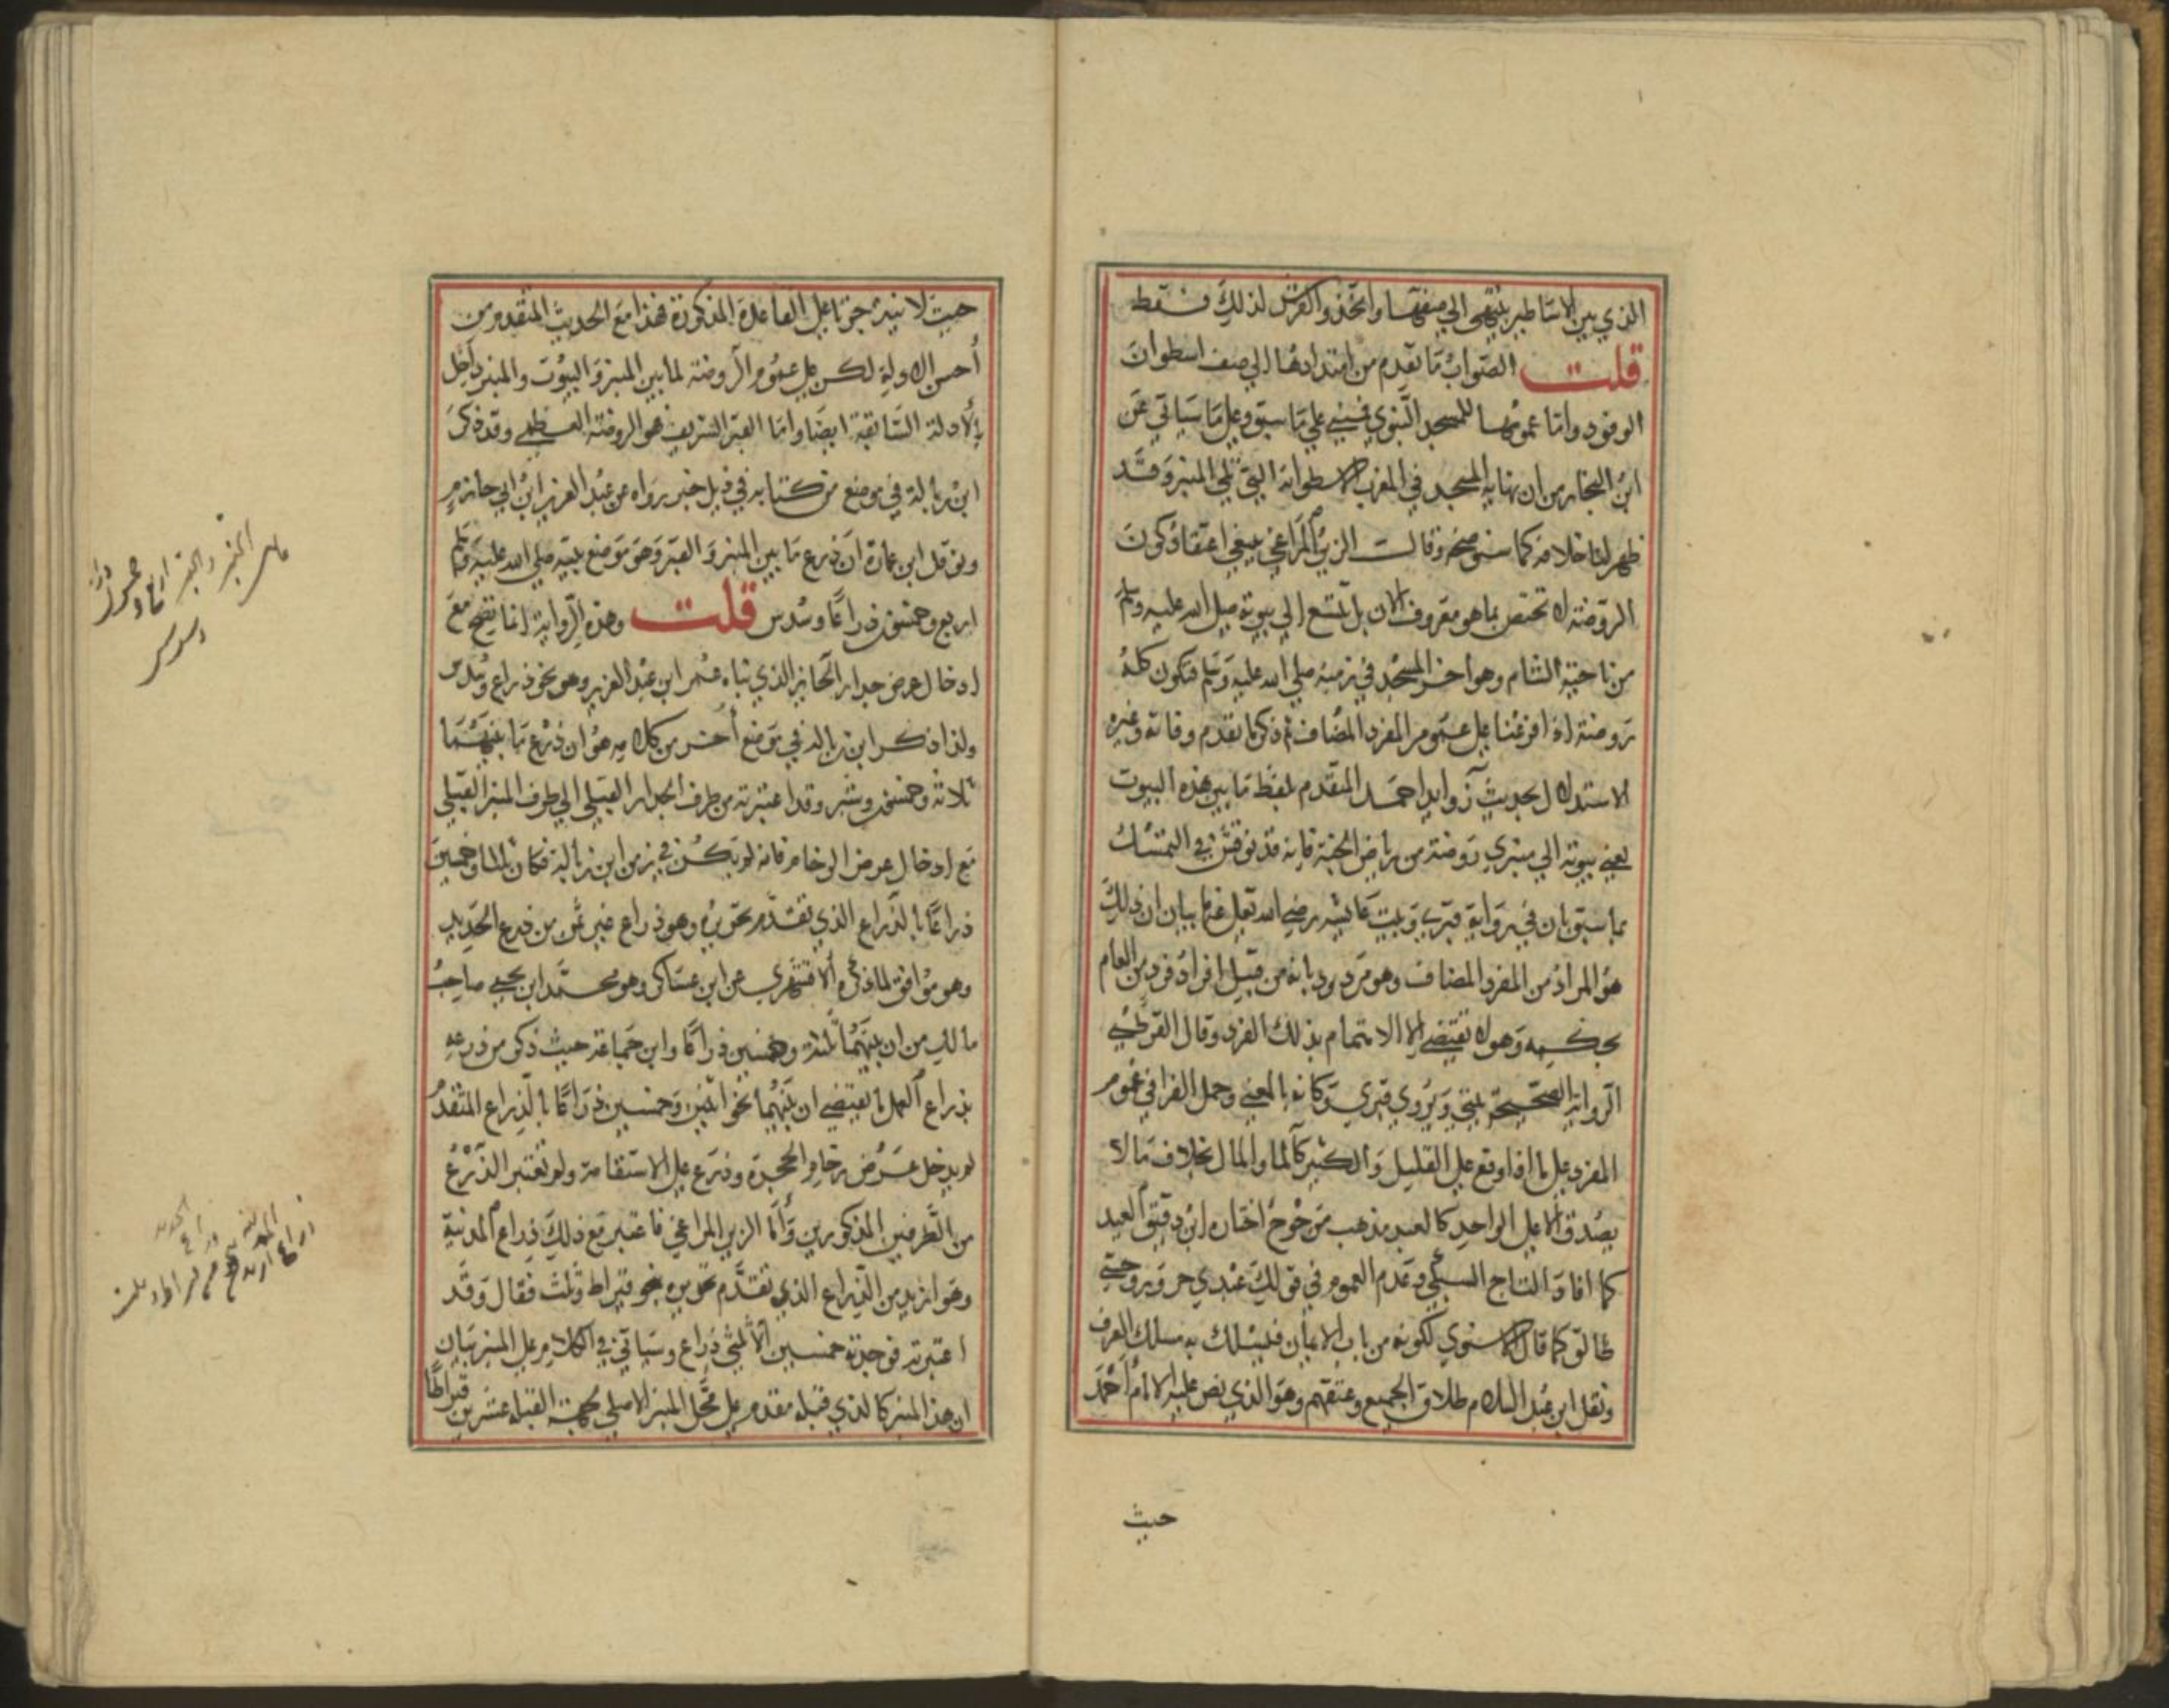 الذي بين الاساطين ينتهي الي صفها واتخذوا الفرش لذلك فقط
قلت الصواب ما تقدم من امتدادها الي صف اسطوان
الوفود واما عمومها للمسجد النبوي فيبني علي ما سبق وعلي ما سياتي عن
ابن النجار من ان نهاية المسجد في المغرب الاسطوانة التي تلي المنبر وقد
ظهر لنا خلافه كما سنوضحه وقالت الزين المراغي ينبغي اعتقاد كون
الروضة لا تختص بما هو معروف الان بل تتسع الي بيوته صلي الله عليه وسلم
من ناحية الشام وهو اخر المسجد في زمنه صلي الله عليه وسلم فتكون كله
روضة اذا فرعنا علي عموم المفرد المضاف ثم ذكر ما تقدم وفاته وغيره
الاستدلال لحديث زوايد احمد المتقدم لفظ ما بين هذه البيوت
يعني بيوته الي منبري روضة من رياض الجنة فانه قد توقش في التمسك
بما سبق بان في رواية قبري وبيت عائشة رضي الله تعلي عنها بيان ان ذلك
هو المراد من المفرد المضاف وهو مردود بانه من قبيل افراد فرد من العام
بحكمه وهو لا تقتضي الا الاهتمام بذلك الفرد وقال القرطبي
الرواية الصحيحة بيتي ويروي قبري وكانه بالمعني وحمل القرافي عموم
المفرد علي ما اذا وقع علي القليل والكثير كالماء والمال بخلاف ما لا
يصدق الا علي الواحد كالعبد مذهب مرجوح اختاره ابن دقيق العيد
كما افاد التاج السبكي وعدم العموم في قولك عبدي حر وزوجتي
طالق كما قال الاسنوي لكونه من باب الايمان فليسلك به مسلك العرف
ونقل ابن عبد السلام طلاق الجميع وعتقهم وهو الذي نص عليه الامام احمد
حيث
حيث لا نية جريا علي القاعدة المذكورة فهذا مع الحديث المتقدم من
أحسن الادلة لكن علي عموم الروضة لما بين المنبر والبيوت والمنبر داخل
بالادلة السابقة ايضا واما القبر الشريف هو الروضة العظمي وقد ذكر
ابن زبالة في موضع من كتابه في ذيل خبر رواه عن عبد العزيز ابن ابي حازم
ونوفل ابن عمارة ان ذرع ما بين المنبر والقبر وهو موضع بيته صلي الله عليه وسلم
اربع وخمسون ذراعًا وسدس قلت وهذه الرواية انما تصح مع
ادخال عرض جدار الحائز الذي بناه عمر ابن عبد العزيز وهو نحو ذراع وسدس
ولذا ذكر ابن زبالة في موضع أخر من كلامه هو ان ذرع ما بينهما
ثلاثة وخمسون وشبر وقد اعتبرته من طرف الجدار القبلي الي طرف المنبر القبلي
مع ادخال عرض الرخام فانه لم يكن في زمن ابن زبالة فكان ثلثا وخمسين
ذراعًا بالذراع الذي تقدم تحريره وهو ذراع غير ثمن من ذرع الحديد
وهو موافق لما ذكره الاقشهري عن ابن عساكر وهو محمد ابن يحيي صاحب
مالك من ان بينهما ثلثة وخمسين ذراعًا وابن جماعة حيث ذكر من ذرعه
بذراع العمل ما يقتضي ان بينهما نحو اثنين وخمسين ذراعًا بالذراع المتقدم
لم يدخل عرض رخام الحجرة وذرع علي الاستقامة ولم تعتبر الذرع
من الطرفين المذكورين وأما الزين المراغي فاعتبر مع ذلك ذراع المدنية
وهو ازيد من الذراع الذي تقدم تحريره بنحو قيراط وثلث فقال وقد
اعتبرته فوجدته خمسين الا ثلثي ذراع وسياتي في الكلام علي المنبر بيان
ان هذا المنبر كالذي قبله مقدم علي محل المنبر الاصلي لجهة القبلة عشرين قيراطًا